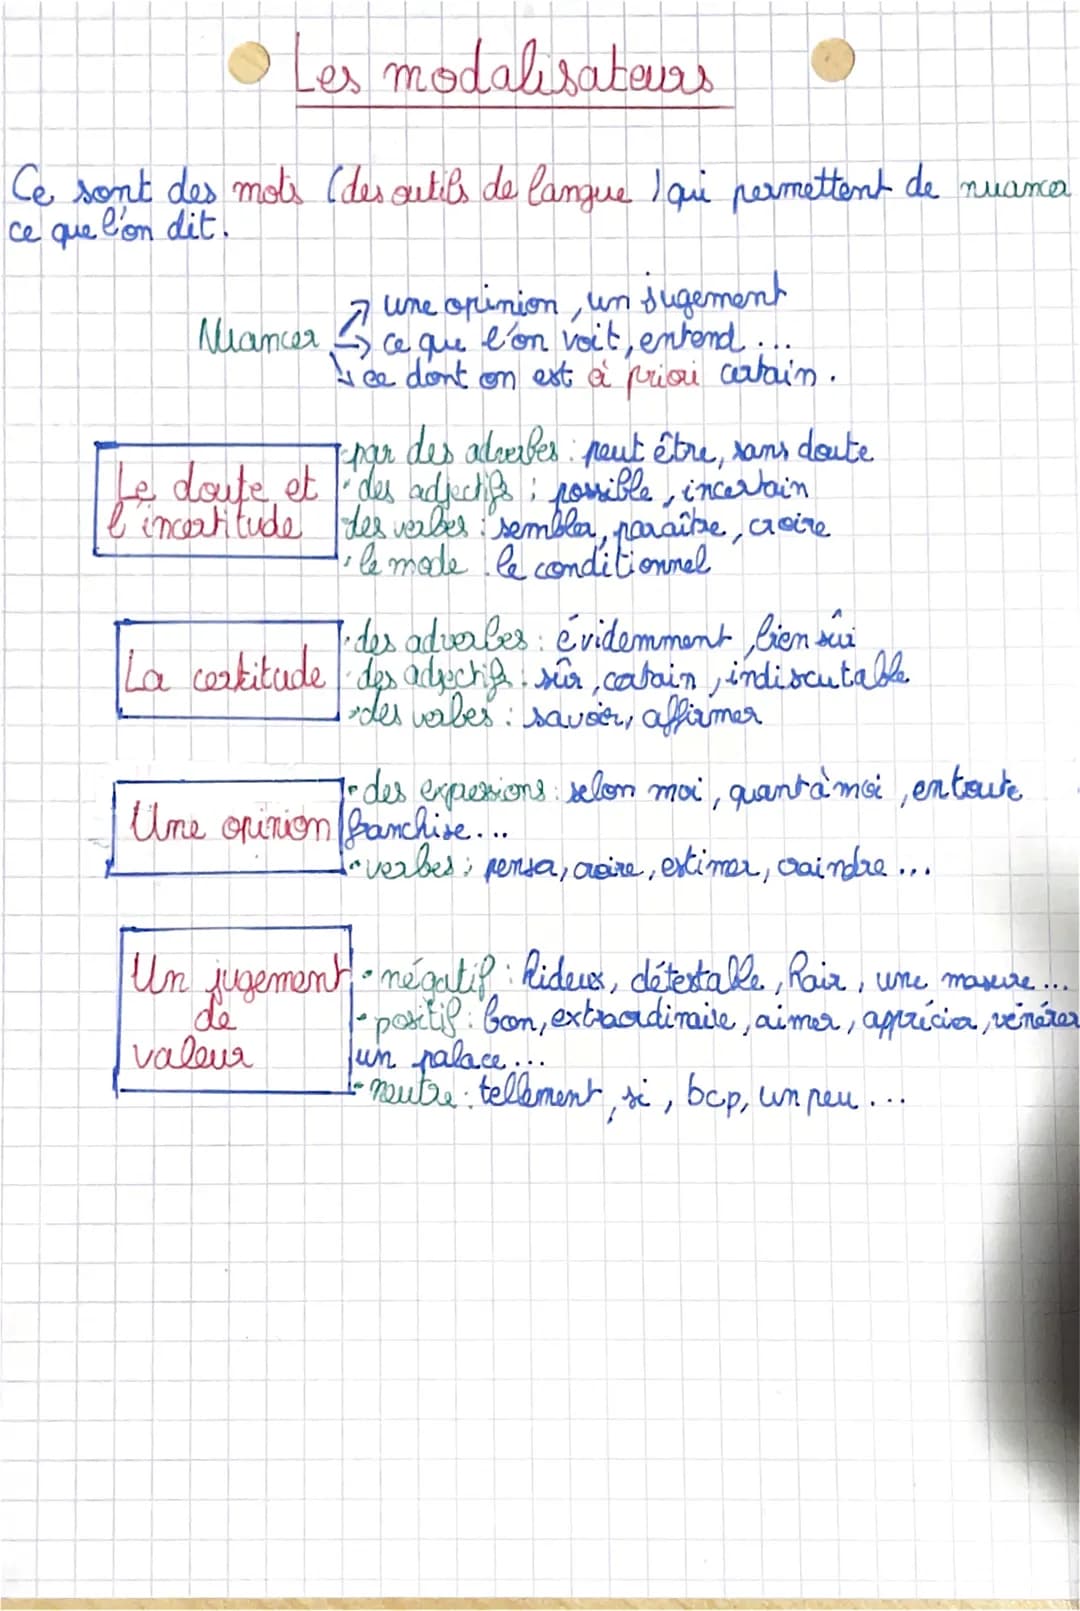 Les modalisateurs
Ce sont des mots (des outils de langue) qui permettent de nuancer
ce que l'on dit.
une opinion, un jugement
Nuancer ce que l'on voit, entend...
ce dont on est à priori certain.
par des adverbes : peut être, sans doute
Le doute et · des adjectifs : possible, incertain
l'incertitude des verbes : sembler, paraître, croire
· le mode le conditionnel
· des adverbes : évidemment, bien sûr
La certitude · des adjectifs : sûr, certain, indiscutable
· des verbes : savoir, affirmer
- des expressions : selon moi, quant à moi, en toute
Une opinion franchise...
- verbes : penser, croire, estimer, craindre...
Un jugement - négatif : hideux, détestable, haïr, une masure...
de - positif : bon, extraordinaire, aimer, apprécier, vénérer
valeur un palace...
- neutre : tellement, si, bcp, un peu...